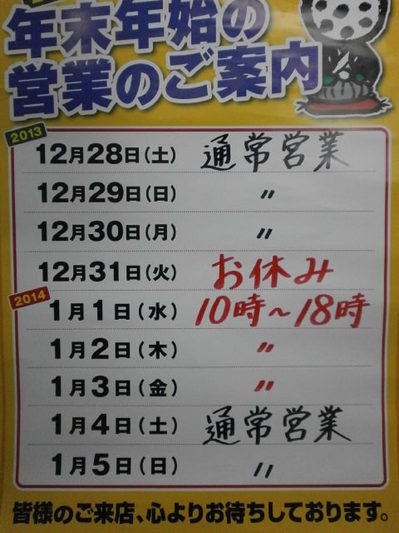 年末年始の
営業のご案内
2013
12月28日(土) 通常営業
12月29日(日) 〃
12月30日(月) 〃
12月31日(火) お休み
2014
1月1日(水) 10時~18時
1月2日(木) 〃
1月3日(金) 〃
1月4日(土) 通常営業
1月5日(日) 〃
皆様のご来店、心よりお待ちしております。